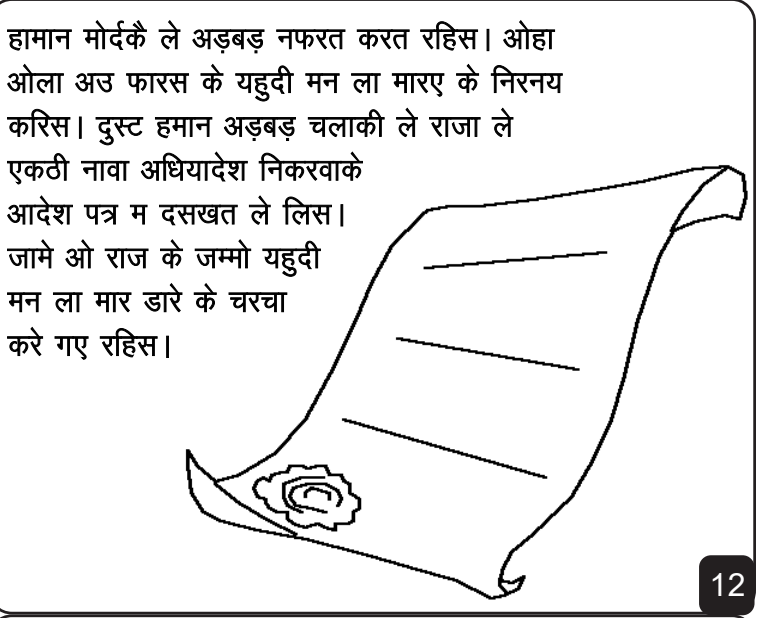 हामान मोर्दकै ले अड़बड़ नफरत करत रहिस। ओहा
ओला अउ फारस के यहुदी मन ला मारए के निरनय
करिस। दुस्ट हमान अड़बड़ चलाकी ले राजा ले
एकठी नावा अधियादेश निकरवाके
आदेश पत्र म दसखत ले लिस।
जामे ओ राज के जम्मो यहुदी
मन ला मार डारे के चरचा
करे गए रहिस।
12